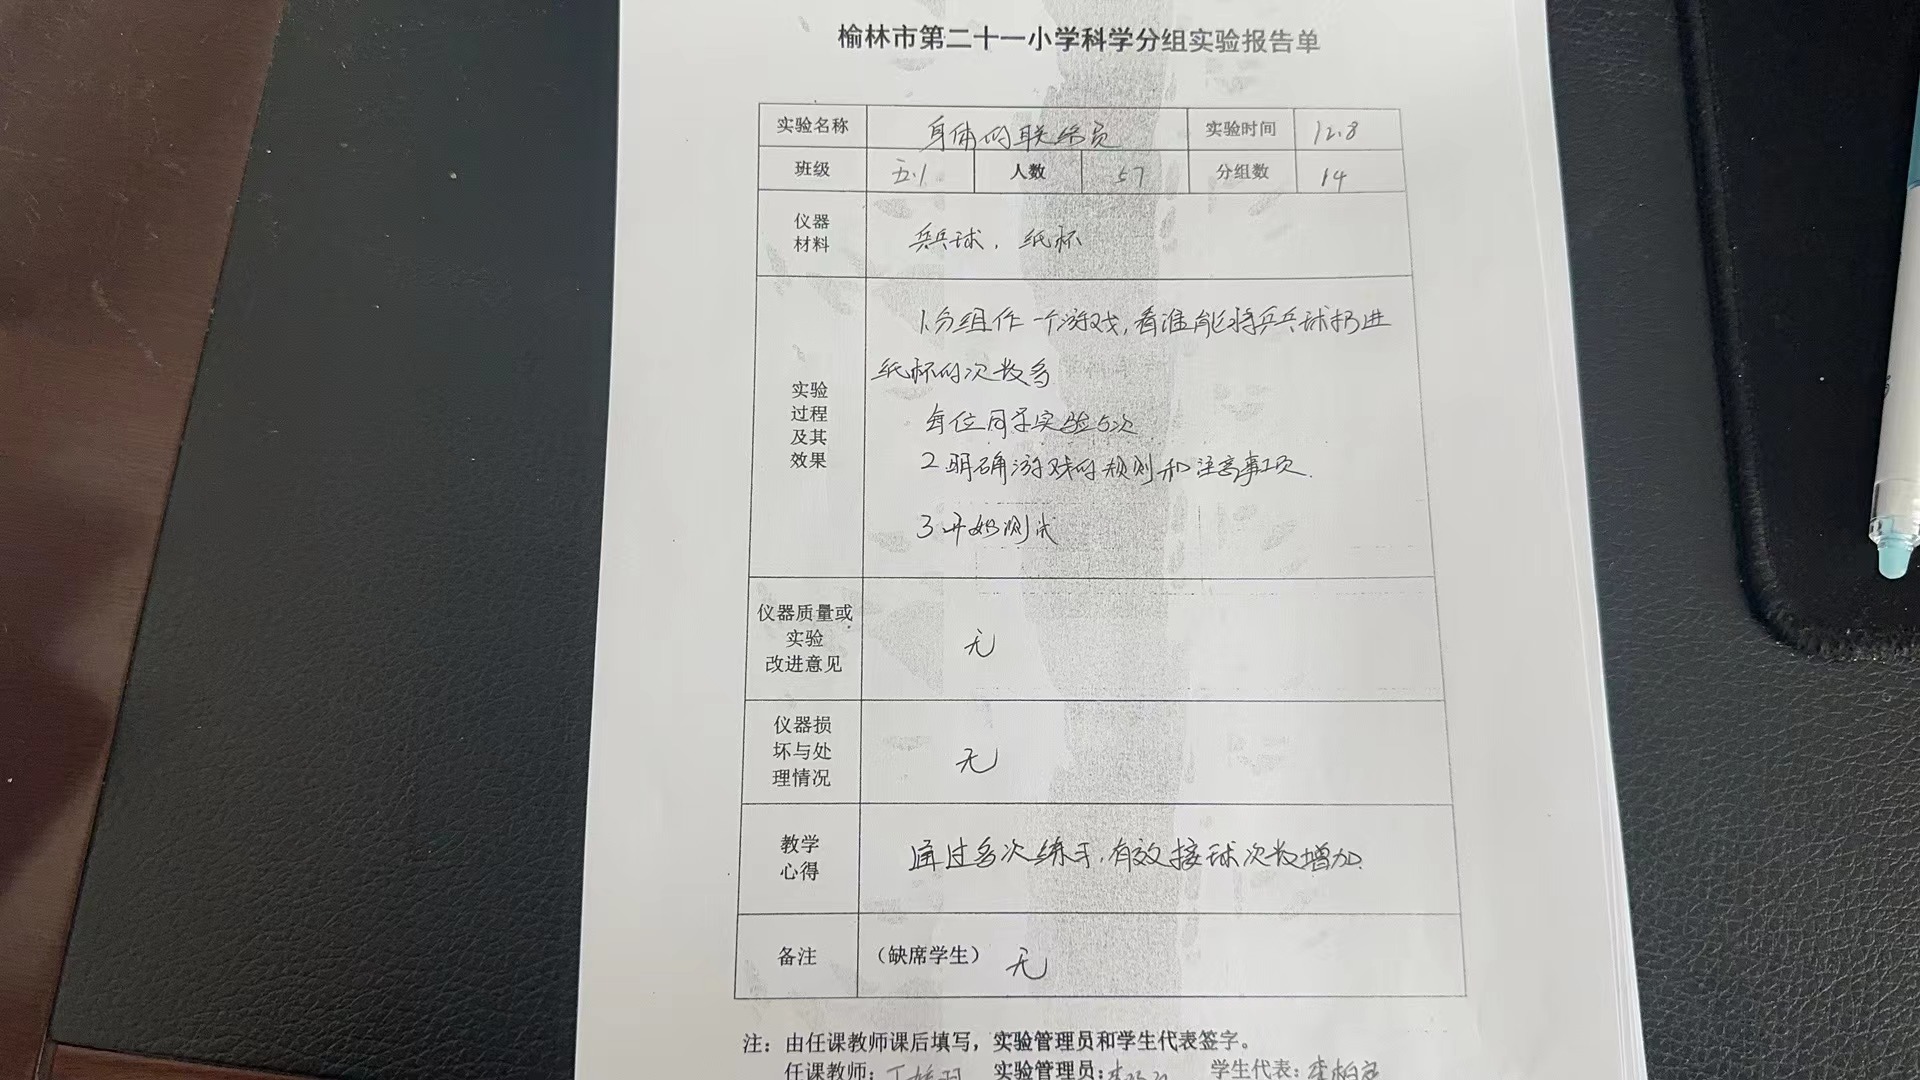 榆林市第二十一小学科学分组实验报告单
实验名称 身体的联络员 实验时间 12.8
班级 五.1 人数 57 分组数 14
仪器
材料
乒乓球, 纸杯
实验
过程
及其
效果
1.分组作一个游戏,看谁能将乒乓球扔进
纸杯的次数多
每位同学实验5次
2 明确游戏的规则和注意事项.
3 开始测试
仪器质量或
实验
改进意见
无
仪器损
坏与处
理情况
无
教学
心得
通过多次练习,有效接球次数增加.
备注 （缺席学生） 无
注：由任课教师课后填写，实验管理员和学生代表签字。
任课教师: 实验管理员: 学生代表: